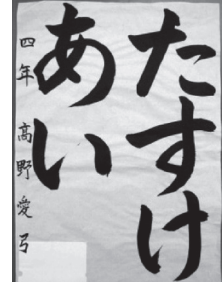 たすけ
あい
四年 高野愛弓